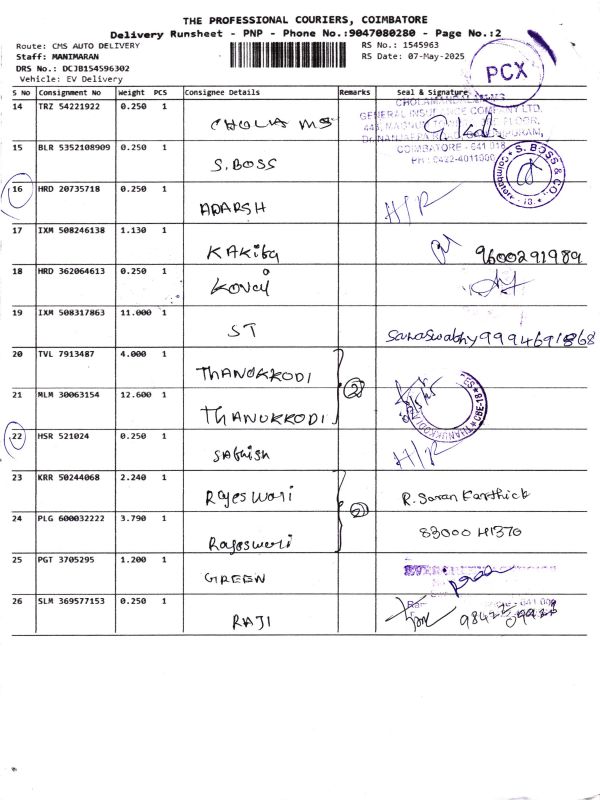 THE PROFESSIONAL COURIERS, COIMBATORE
Delivery Runsheet - PNP - Phone No.:9047080280 - Page No.:2
Route: CMS AUTO DELIVERY
RS No.: 1545963
Staff: MANIMARAN
RS Date: 07-May-2025
DRS No.: DCJB154596302
Vehicle: EV Delivery
PCX
S No Consignment No Weight PCS Consignee Details Remarks Seal & Signature
14 TRZ 54221922 0.250 1 CHOLA MS
GENERAL INSURANCE COMPANY LTD.
COIMBATORE - 641 018
PH : 0422-4011000
15 BLR 5352108909 0.250 1 S.BOSS
S. BOSS & CO
Coimbatore - 18.
16 HRD 20735718 0.250 1 ADARSH H/R
17 IXM 508246138 1.130 1 KAKiby 9600291989
18 HRD 362064613 0.250 1
19 IXM 508317863 11.000 1 ST Saraswathy 9994691868
20 TVL 7913487 4.000 1 THANUKKODI
21 MLM 30063154 12.600 1 THANUKKODI (2)
THANUKKODI CBE-18
22 HSR 521024 0.250 1 Sathish H/R
23 KRR 50244068 2.240 1 Rajeswari (2) R. Saran Karthick
24 PLG 600032222 3.790 1 Rajeswari 83000 41370
25 PGT 3705295 1.200 1 GREEN
26 SLM 369577153 0.250 1 RAJI 98422 09923